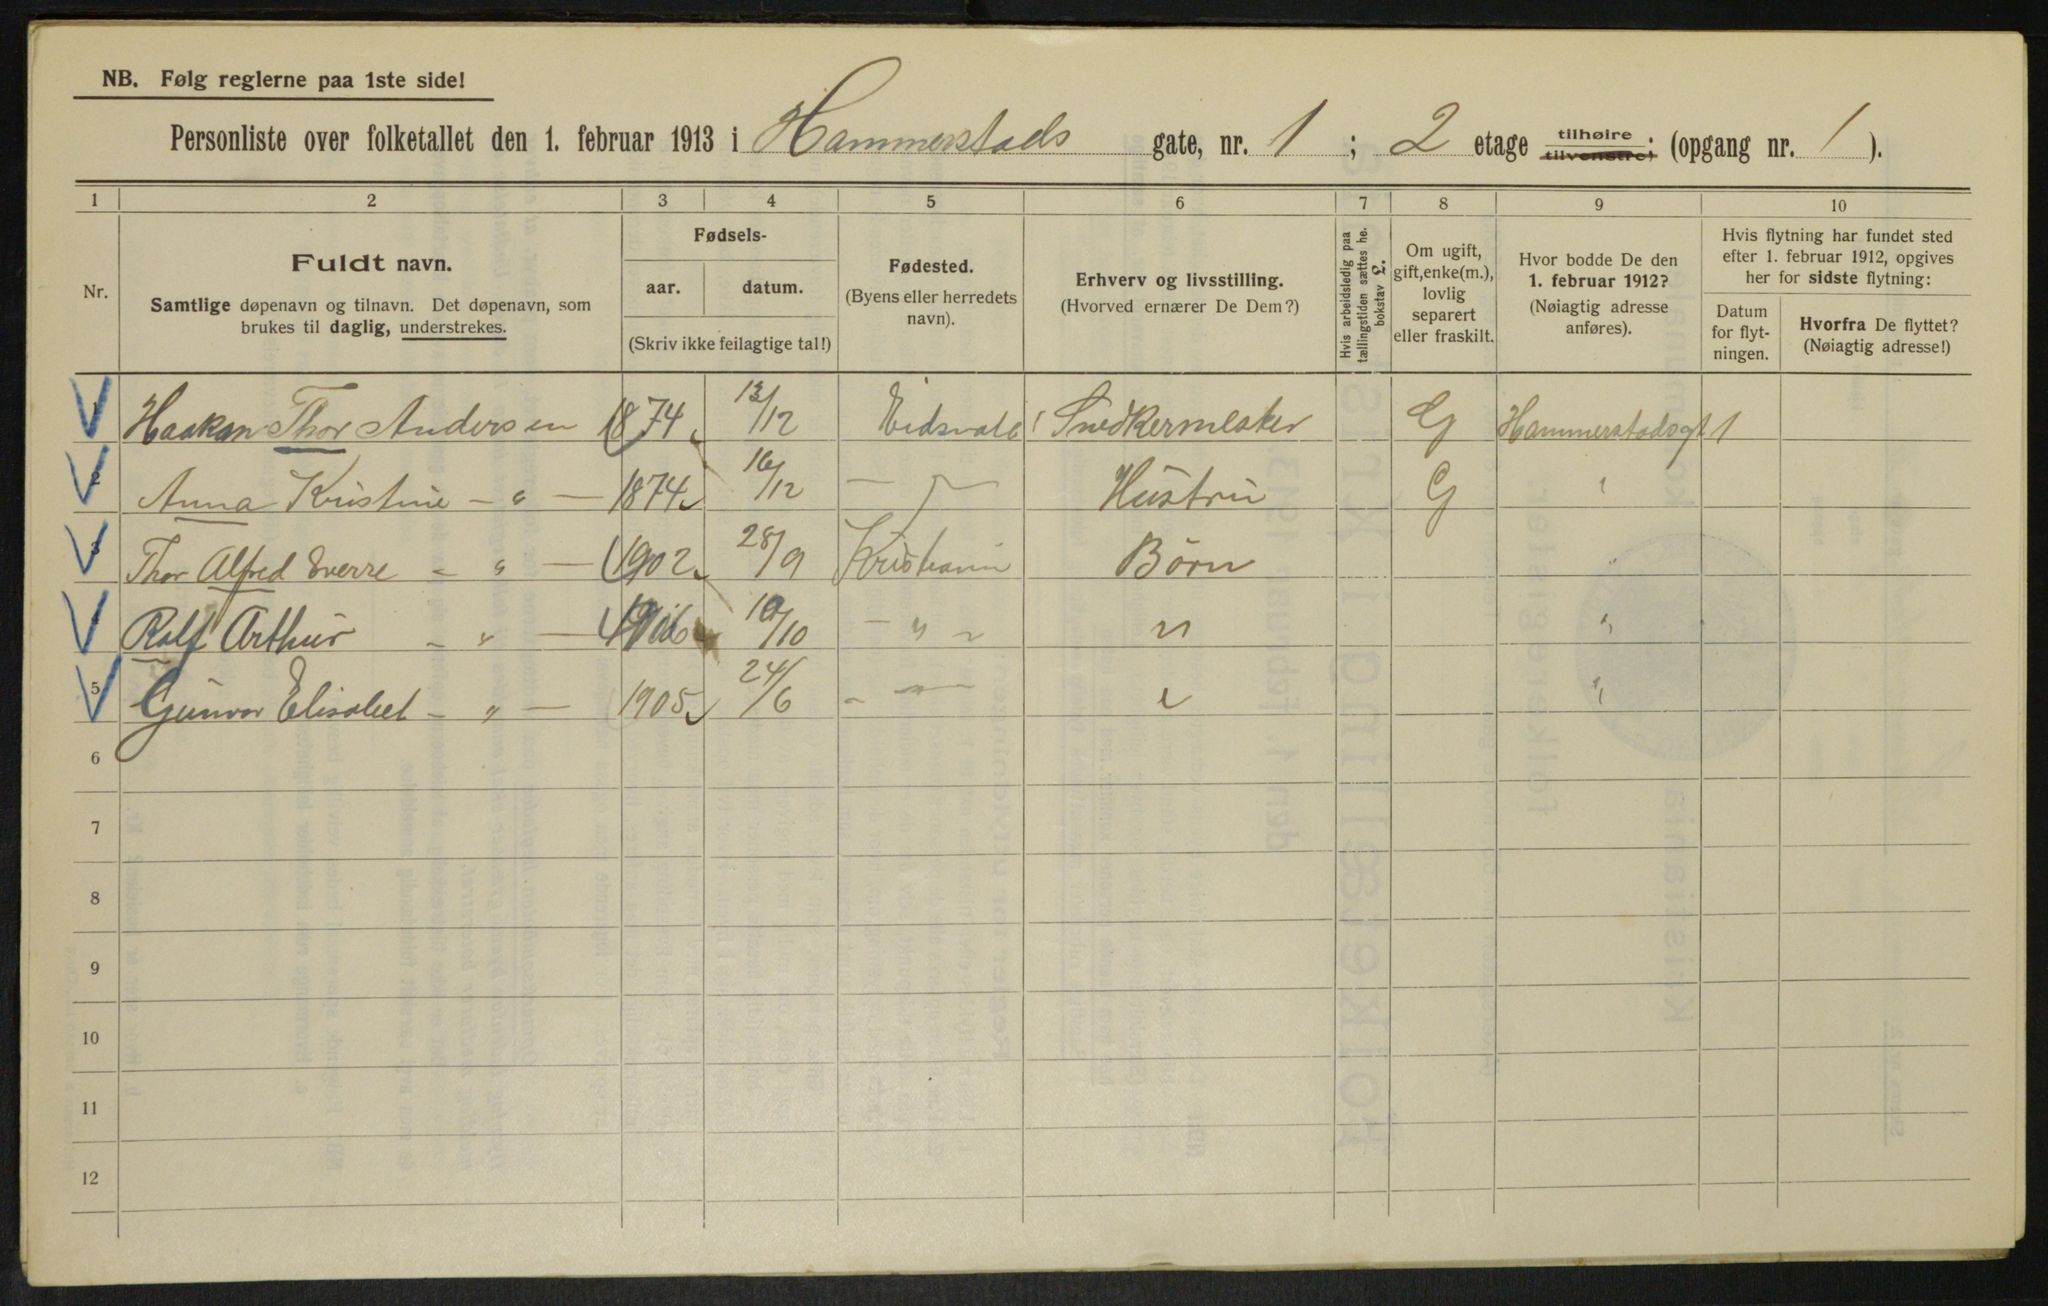 NB. Følg reglerne paa 1ste side!
Personliste over folketallet den 1. februar 1913 i Hammerstads gate, nr. 1 ; 2 etage tilhøire tilvenstre; (opgang nr. 1 ).
1 2 3 4 5 6 7 8 9 10
Nr.
Fuldt navn.
Samtlige døpenavn og tilnavn. Det døpenavn, som
brukes til daglig, understrekes.
Fødsels-
aar. datum.
(Skriv ikke feilagtige tal!)
Fødested.
(Byens eller herredets
navn).
Erhverv og livsstilling.
(Hvorved ernærer De Dem?)
Hvis arbeidsledig paa
tællingstiden sættes he.
bokstav £.
Om ugift,
gift, enke(m.),
lovlig
separert
eller fraskilt.
Hvor bodde De den
1. februar 1912?
(Nøiagtig adresse
anføres).
Hvis flytning har fundet sted
efter 1. februar 1912, opgives
her for sidste flytning:
Datum
for flyt-
ningen.
Hvorfra De flyttet?
(Nøiagtig adresse!)
1 Haakon Thor Andersen 1874 13/12 Eidsvold Snedkermester G Hammerstadsgt 1
2 Anna Kristine - " - 1874 16/12 - " - Hustru G "
3 Thor Alfred Sverre - " - 1902 28/9 Kristiania Børn "
4 Rolf Arthur - " - 10/10 - " - " "
5 Gunvor Elisabet - " - 1905 24/6 - " - " "
6
7
8
9
10
11
12